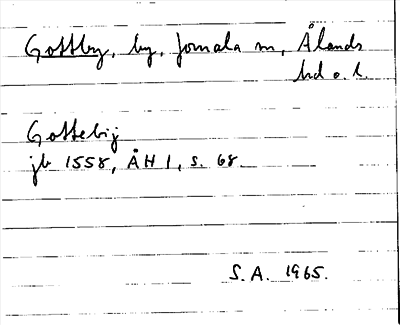 Gottby, by, Jomala sn, Ålands
hd o. l.
Gottebij
jb 1558, ÅH 1, s. 68
S.A. 1965.